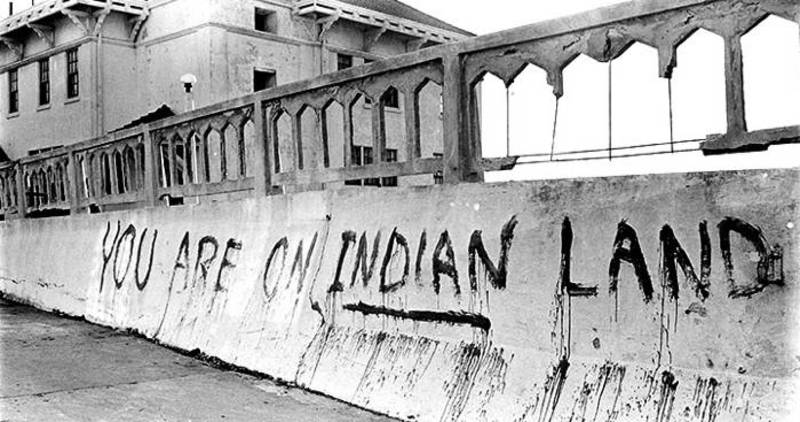 YOU ARE ON INDIAN LAND